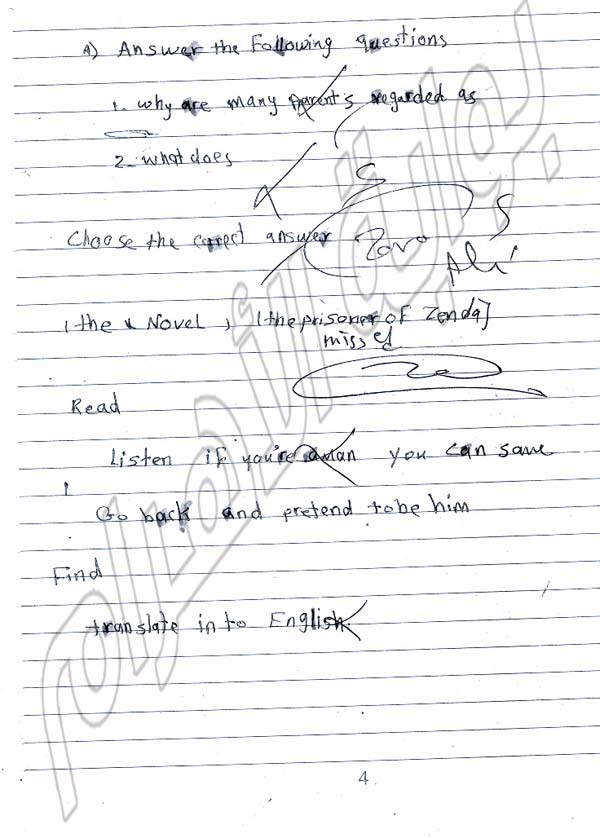 A) Answer the Following questions
1. why are many parent's regarded as
2. what does
S
Choose the correct answer
Zero
S
(the Novel) (the prisoner of Zenda]
missed
Read
Listen if you're a man you can save
Go back and pretend to be him
Find
translate in to English
4